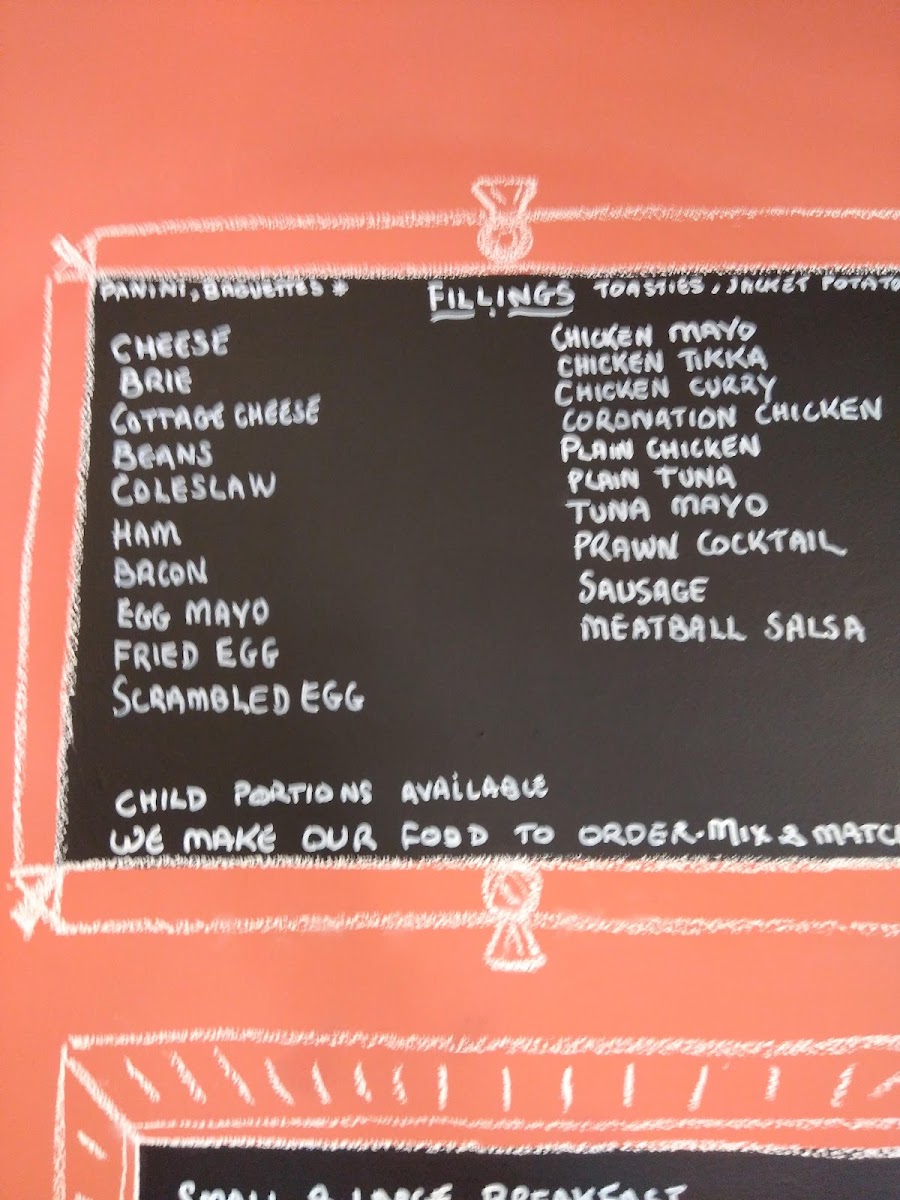 PANINI, BAGUETTES * FILLINGS TOASTIES, JACKET POTATO
CHEESE
BRIE
COTTAGE CHEESE
BEANS
COLESLAW
HAM
BACON
EGG MAYO
FRIED EGG
SCRAMBLED EGG
CHICKEN MAYO
CHICKEN TIKKA
CHICKEN CURRY
CORONATION CHICKEN
PLAIN CHICKEN
PLAIN TUNA
TUNA MAYO
PRAWN COCKTAIL
SAUSAGE
MEATBALL SALSA
CHILD PORTIONS AVAILABLE
WE MAKE OUR FOOD TO ORDER-MIX & MATCH
SMALL & LARGE BREAKFAST